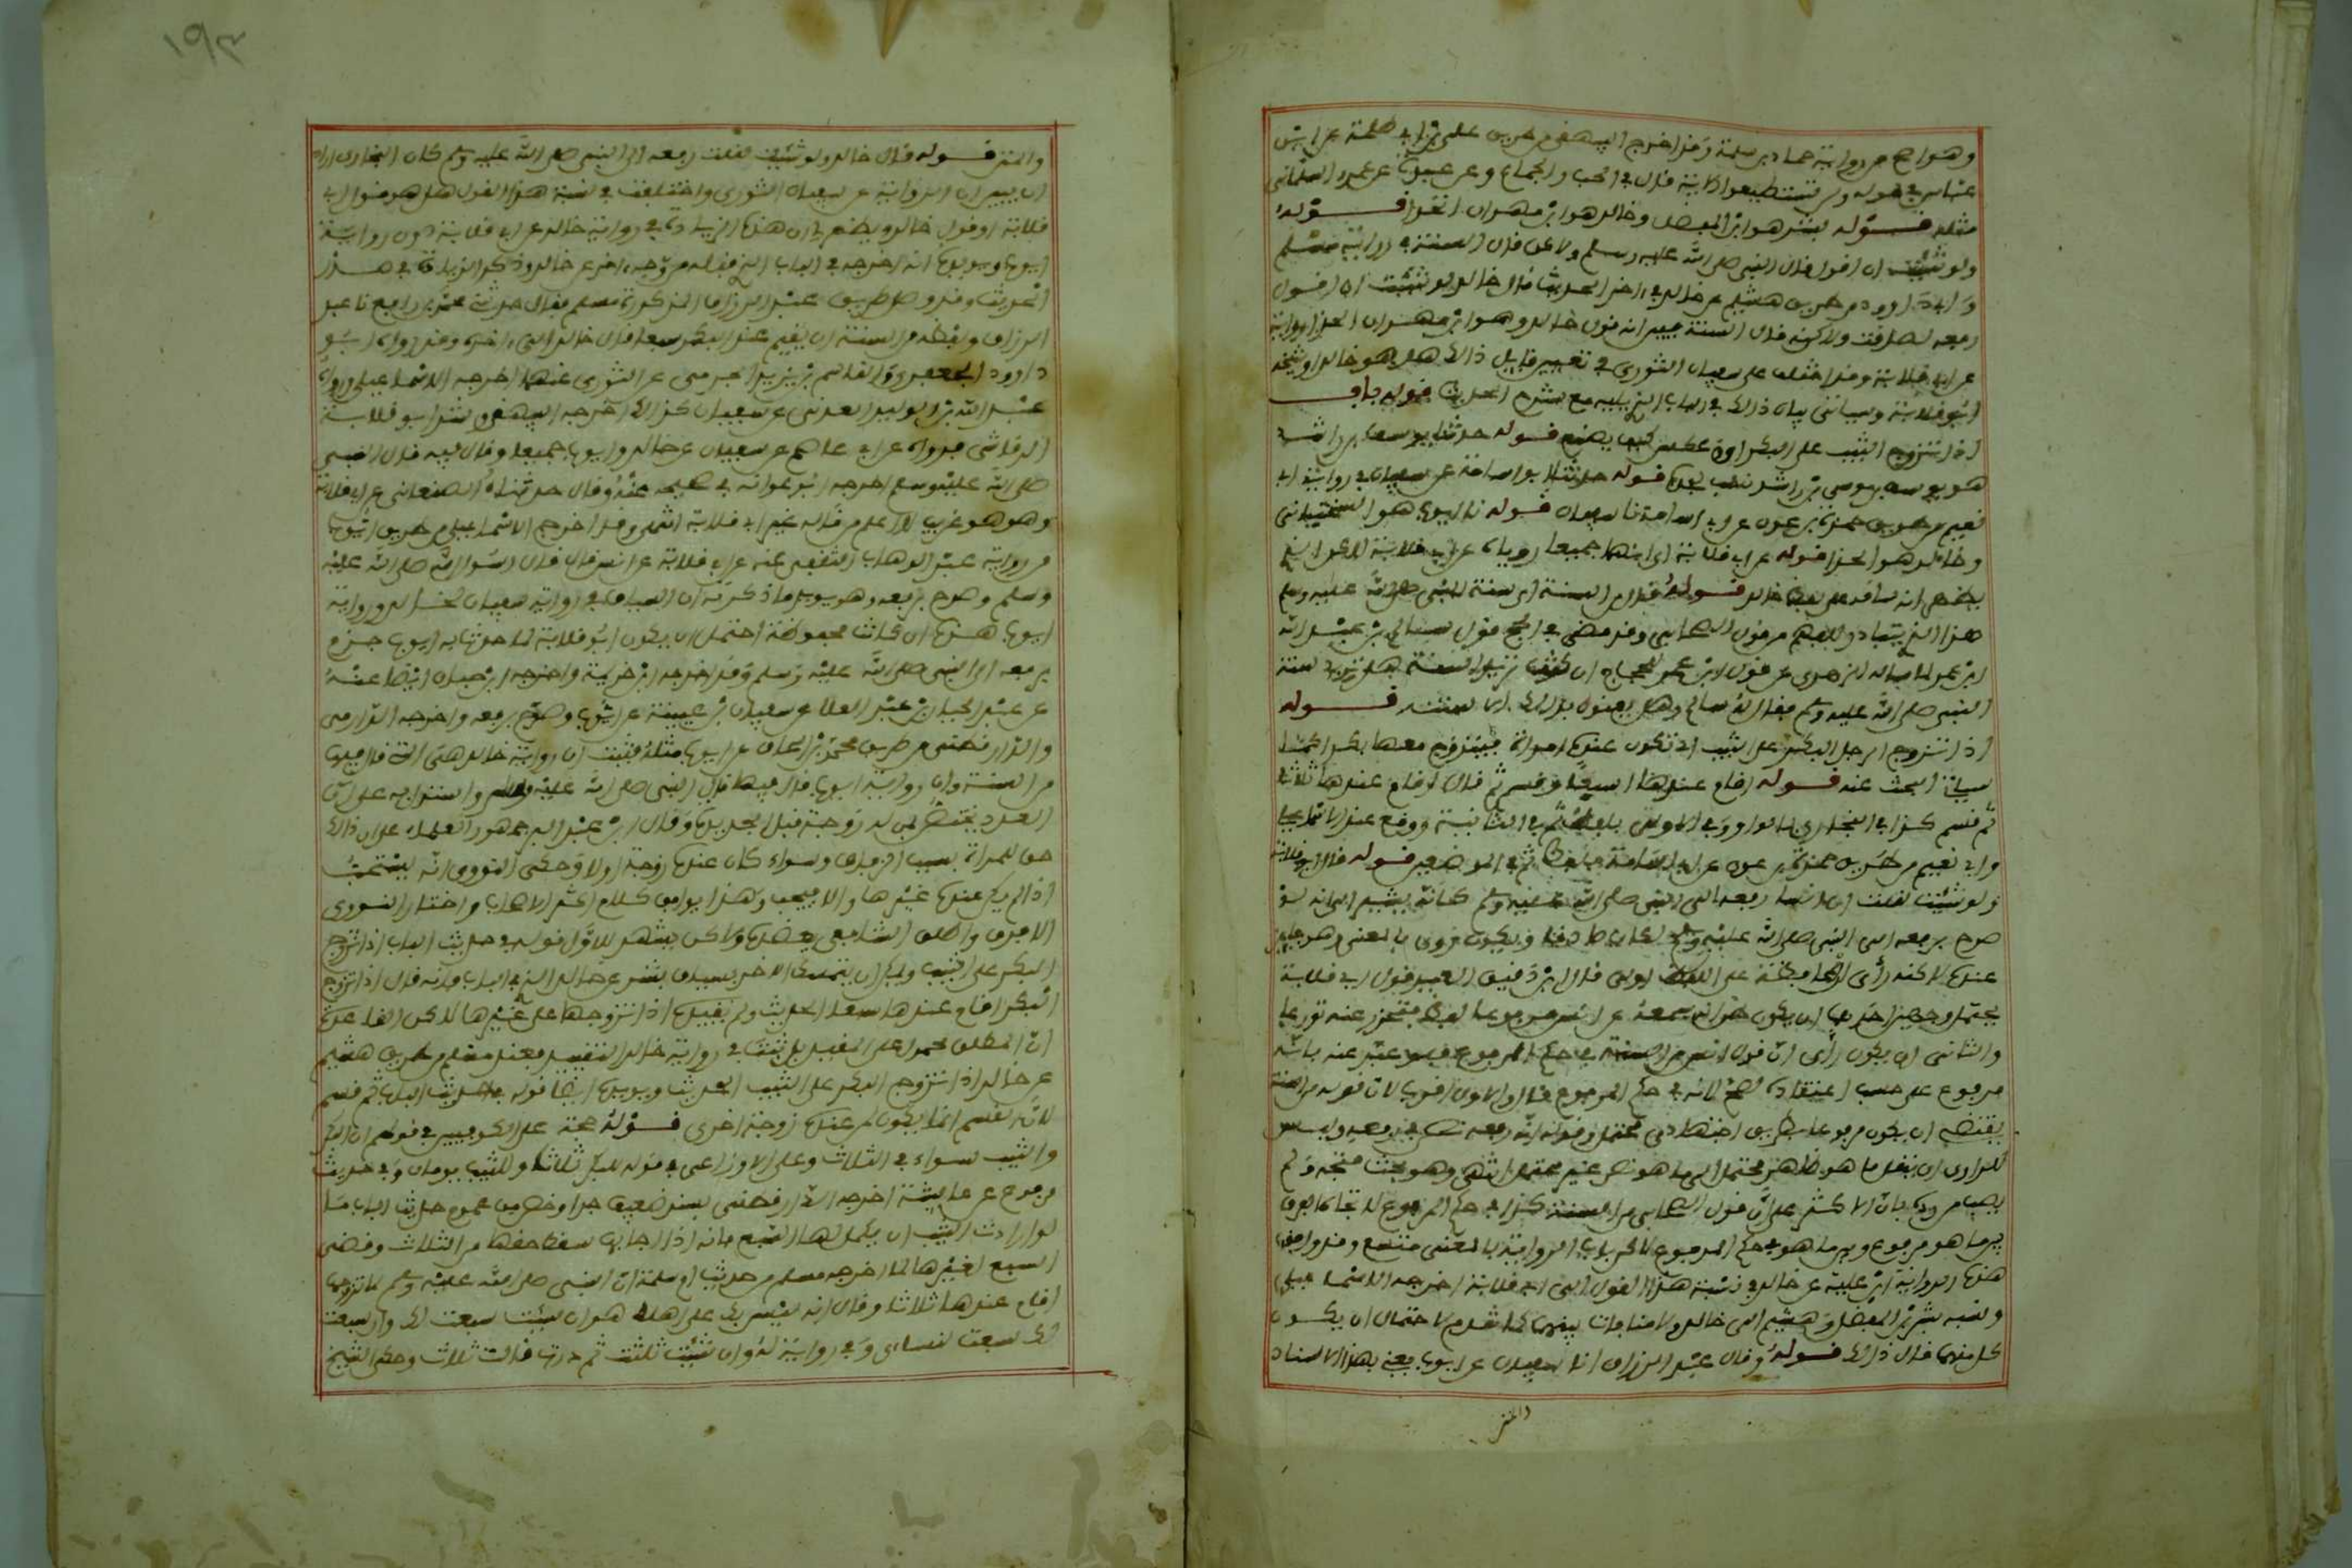 وهو اصح من رواية حماد بن سلمة وقد اخرج البيهقي من طريق علي بن ابي طلحة عن ابن
عباس في قوله ولن تستطيعوا الاية قال في الحب والجماع وعن عبيدة عن عمرو السلماني
مثله قوله بشر هو ابن المفضل وخالد هو ابن مهران الحذا قوله
ولو شئت ان اقول قال النبي صلى الله عليه وسلم ولاكن قال السنة في رواية مسلم
وابي داوود من طريق هشيم عن خالد في اخر الحديث قال خالد لو شئت ان اقول
رفعه لصدقت ولاكنه قال السنة فبين انه قول خالد وهو ابن مهران الحذا راويه
عن ابي قلابة وقد اختلف على سفيان الثوري في تعيين قايل ذالك هل هو خالد او شيخه
ابو قلابة وسياتي بيان ذالك في الباب الذي يليه مع شرح الحديث قوله باب
اذا تزوج الثيب على البكر اي او عكس كيف يصنع قوله حدثنا يوسف بن راشد
هو يوسف بن موسى بن راشد نسب لجده قوله حدثنا ابو اسامة عن سفيان في رواية ابي
نعيم من طريق حمزة بن عون عن ابي اسامة نا سفيان قوله نا ايوب هو السختياني
وخالد هو الحذا قوله عن ابي قلابة اي انهما جميعا روياه عن ابي قلابة لاكن الذي
يظهر انه ساقه على لفظ خالد قوله قال من السنة اي سنة النبي صلى الله عليه وسلم
هذا الذي يتبادر للفهم من قول الصحابي وقد مضى في الحج قول سالم بن عبد الله
ابن عمر لما سأله الزهري عن قول ابن عمر للحجاج ان كنت تريد السنة هل تريد سنة
النبي صلى الله عليه وسلم فقال له سالم وهل يعنون بذالك الا سنته قوله
اذا تزوج الرجل البكر على الثيب اي تكون عنده امراة فيتزوج معها بكرا كما
سياتي البحث عنه قوله اقام عندها سبعا وقسم ثم قال اقام عندها ثلاثا
ثم قسم كذا في البخاري بالواو في الاولى بلفظ ثم في الثانية ووقع عند الاسماعيلي
وابي نعيم من طريق حمزة بن عون عن ابي اسامة بلفظ ثم في الموضعين قوله قال ابو قلابة
ولو شئت لقلت ان انسا رفعه الى النبي صلى الله عليه وسلم كانه يشير الى انه لو
صرح برفعه الى النبي صلى الله عليه وسلم لكان صادقا ويكون روى بالمعنى وهو جايز
عنده لاكنه رأى ان المحافظة على اللفظ اولى قال ابن دقيق العيد قول ابي قلابة
يحتمل وجهين احدهما ان يكون ظن انه سمعه عن انس مرفوعا لفظا فتحرز عنه تورعا
والثاني ان يكون رأى ان قول انس من السنة في حكم المرفوع فلو عبر عنه بانه
مرفوع على حسب اعتقاده لصح لانه في حكم المرفوع قال والاول اقرب لان قوله من السنة
يقتضي ان يكون مرفوعا بطريق اجتهادي محتمل وقوله انه رفعه نص في رفعه وليس
للراوي ان ينقل ما هو ظاهر محتمل الى ما هو نص غير محتمل انتهى وهو بحث متجه ولم
يصب من رده بان الاكثر على ان قول الصحابي من السنة كذا في حكم المرفوع لاتجاه الفرق
بين ما هو مرفوع وبين ما هو في حكم المرفوع لاكن باب الرواية بالمعنى متسع وقد وافق
هذه الرواية ابن علية عن خالد في نسبة هذا القول الى ابي قلابة اخرجه الاسماعيلي
ونسبه بشر بن المفضل وهشيم الى خالد ولا منافات بينهما كما تقدم لاحتمال ان يكون
كل منهما قال ذالك قوله وقال عبد الرزاق انا سفيان عن ايوب يعني بهذا الاسناد
والمتن
١٩٣
والمتن قوله قال خالد ولو شئت لقلت رفعه الى النبي صلى الله عليه وسلم كان البخاري اراد
ان يبين ان الرواية عن سفيان الثوري واختلفت في نسبة هذا القول هل هو قول ابي
قلابة او قول خالد ويظهر لي ان هذه الزيادة في رواية خالد عن ابي قلابة دون رواية
ايوب ويويده انه اخرجه في الباب الذي قبله من وجه اخر عن خالد وذكر الزيادة في هذا
الحديث وقد وصل طريق عبد الرزاق المذكورة مسلم فقال حدثني محمد بن رافع نا عبد
الرزاق ولفظه من السنة ان يقيم عند البكر سبعا قال خالد الى اخره وقد رواه ابو
داوود الجعفري والقاسم بن يزيد الجرمي عن الثوري عنهما اخرجه الاسماعيلي ورواه
عبد الله بن الوليد العدني عن سفيان كذالك اخرجه البيهقي وشذ ابو قلابة
الرقاشي فرواه عن ابي عاصم عن سفيان عن خالد وايوب جميعا وقال فيه قال النبي
صلى الله عليه وسلم اخرجه ابو عوانه في صحيحه عنه وقال حدثناه الصنعاني عن ابي قلابة
وهو هو غريب لا اعلم من قاله غير ابي قلابة انتهى وقد اخرج الاسماعيلي من طريق ايوب
من رواية عبد الوهاب الثقفي عنه عن ابي قلابة عن انس قال قال رسول الله صلى الله عليه
وسلم وصرح برفعه وهو يويد ما ذكرته ان السياق في رواية سفيان لخالد ورواية
ايوب هذه ان كانت محفوظة احتمل ان يكون ابو قلابة لما حدث به ايوب جزم
برفعه الى النبي صلى الله عليه وسلم وقد اخرجه ابن خزيمة واخرجه ابن حبان ايضا عنه
عن عبد الجبار بن عبد العلا عن سفيان بن عيينة عن ايوب وصرح برفعه واخرجه الدارمي
والدارقطني من طريق محمد بن اسحاق عن ايوب مثله فثبت ان رواية خالد هي التي قال فيها
من السنة وان رواية ايوب قال فيها قال النبي صلى الله عليه وسلم واستدل به على ان
العدد يختص بمن له زوجة قبل الجديدة وقال ابن عبد البر جمهور العلماء على ان ذالك
حق للمراة بسبب الزفاف وسواء كان عنده زوجة او لا وحكى النووي انه يستحب
اذا لم يكن عنده غيرها والا فيجب وهذا يوافق كلام اكثر الاصحاب واختار النووي
الا فرق واطلاق الشافعي يعضده ولاكن يشهد للاول قوله في حديث الباب اذا تزوج
البكر على الثيب ويمكن ان يتمسك للاخر بسياق بشر عن خالد الذي في الباب فانه قال اذا تزوج
البكر اقام عندها سبعا الحديث ولم يقيده اذا تزوجها على غيرها لاكن القاعدة
ان المطلق محمول على المقيد بل ثبت في رواية خالد التقييد فعند مسلم من طريق هشيم
عن خالد اذا تزوج البكر على الثيب الحديث ويويده ايضا قوله في حديث الباب ثم قسم
لان القسم انما يكون لمن عنده زوجة اخرى قوله حجة على الكوفيين في قولهم ان البكر
والثيب سواء في الثلاث وعلى الاوزاعي في قوله للبكر ثلاثا وللثيب يومان وفي حديث
مرفوع عن عايشة اخرجه الدارقطني بسند ضعيف جدا وخص من عموم حديث الباب ما
لو ارادت الثيب ان يكمل لها السبع فانه اذا اجابها سقط حقها من الثلاث وقضى
السبع لغيرها لما اخرجه مسلم من حديث ام سلمة ان النبي صلى الله عليه وسلم لما تزوجها
اقام عندها ثلاثا وقال انه ليس بك على اهلك هوان شئت سبعت لك وان سبعت
لك سبعت لنساءي وفي رواية له وان شئت ثلثت ثم درت قالت ثلاث وحكى الشيخ